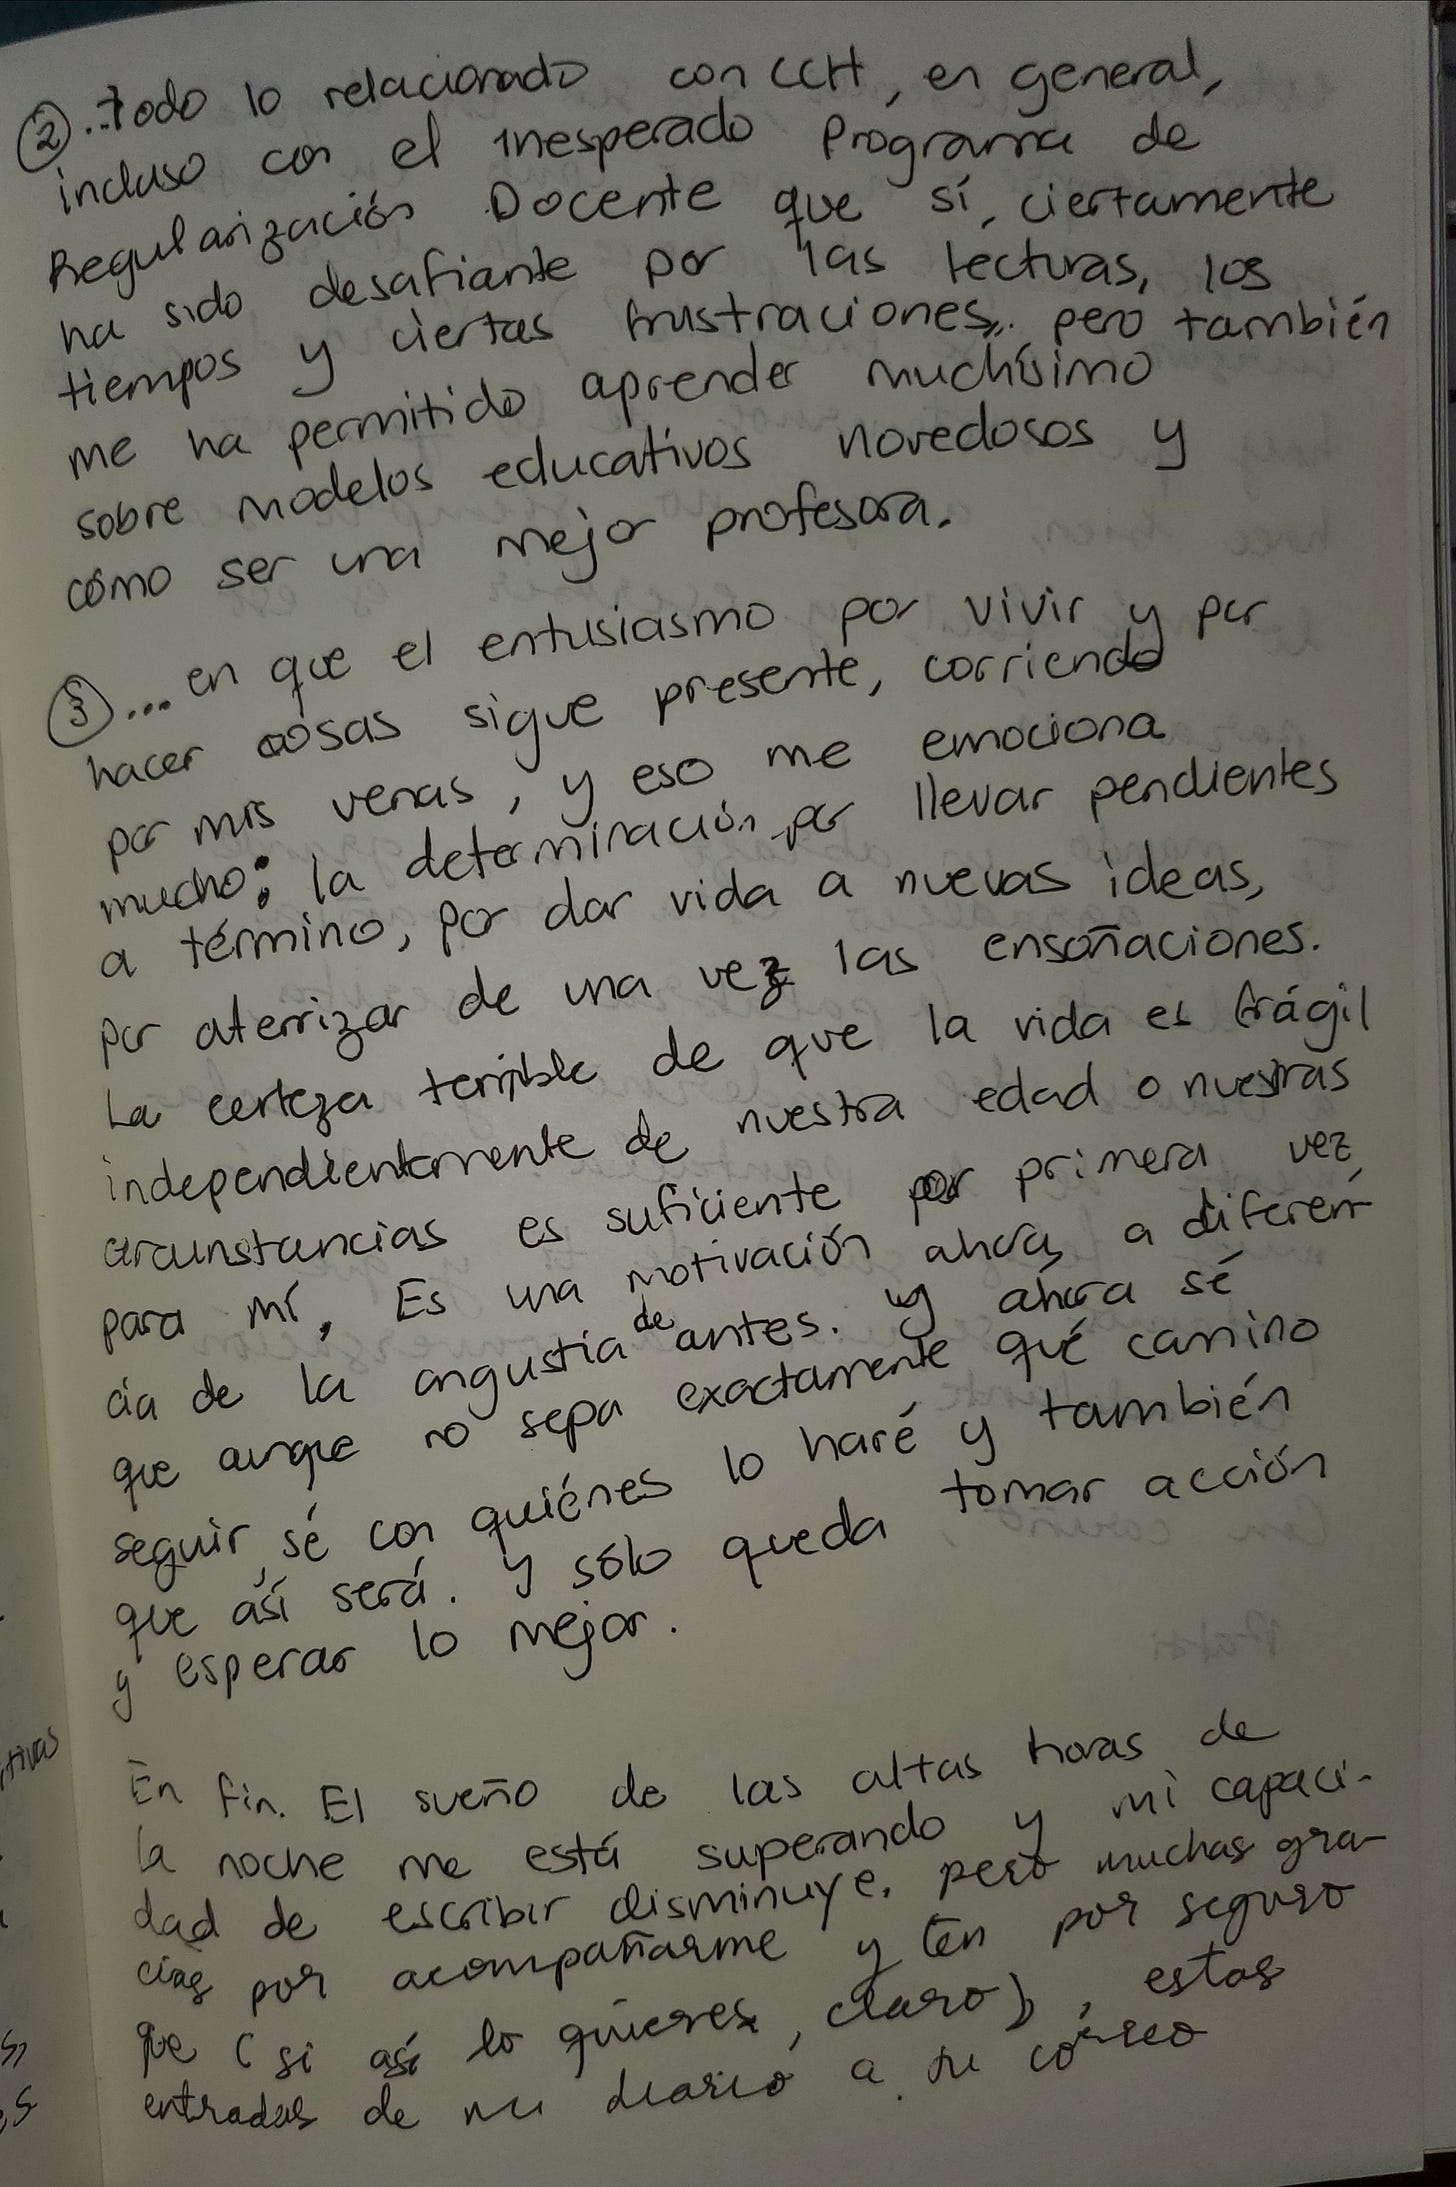 ② ...todo lo relacionado con CCH, en general,
incluso con el inesperado Programa de
Regularización Docente que sí, ciertamente
ha sido desafiante por las lecturas, los
tiempos y ciertas frustraciones... pero también
me ha permitido aprender muchísimo
sobre modelos educativos novedosos y
cómo ser una mejor profesora.
③ ... en que el entusiasmo por vivir y por
hacer cosas sigue presente, corriendo
por mis venas, y eso me emociona
mucho: la determinación por llevar pendientes
a término, por dar vida a nuevas ideas,
por aterrizar de una vez las ensoñaciones.
La certeza terrible de que la vida es frágil
independientemente de nuestra edad o nuestras
circunstancias es suficiente por primera vez
para mí. Es una motivación ahora, a diferen-
cia de la angustia de antes. Y ahora sé
que aunque no sepa exactamente qué camino
seguir, sé con quiénes lo haré y también
que así será. Y sólo queda tomar acción
y esperar lo mejor.
En fin. El sueño de las altas horas de
la noche me está superando y mi capaci-
dad de escribir disminuye, pero muchas gra-
cias por acompañarme y ten por seguro
que (si así lo quieres, claro), estas
entradas de mi diario a tu correo